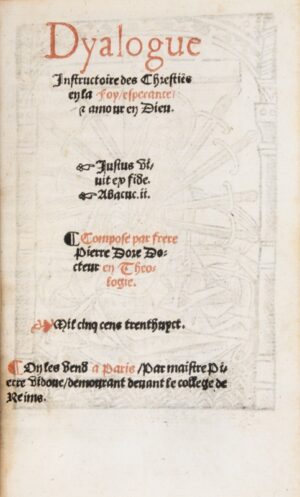 Dyalogue
Instructoire des Chrestiẽs
en la Foy/esperance/
⁊ amour en Dieu.
☞ Justus vi-
uit ex fide.
☞ Abacuc. ii.
¶ Compose par frere
Pierre Dore Do-
cteur en Theo-
logie.
Mil cinq cens trenthuyct.
¶ On les vend a Paris/Par maistre Pi-
erre vidoue/demourant deuant le college de
Reims.